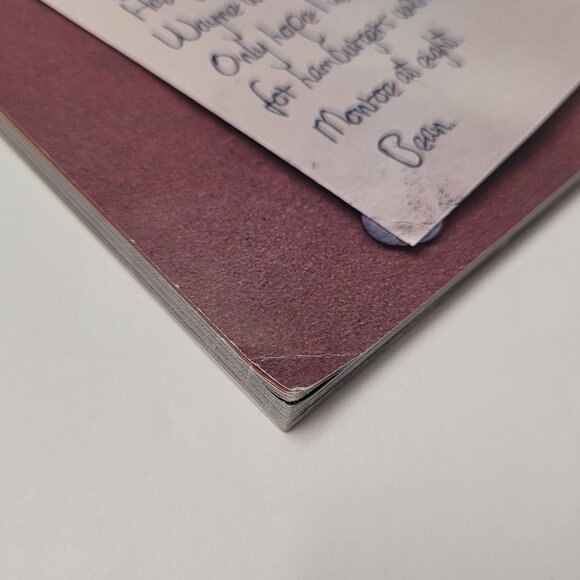 Wayne
Only hope I
for hamburger with
Monroe at eight
Bean.